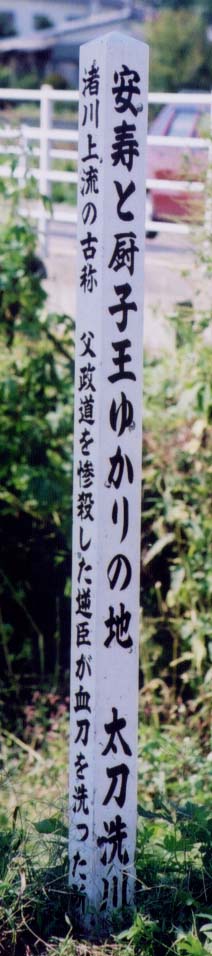 安寿と厨子王ゆかりの地 太刀洗川
渚川上流の古称 父政道を惨殺した逆臣が血刀を洗った所